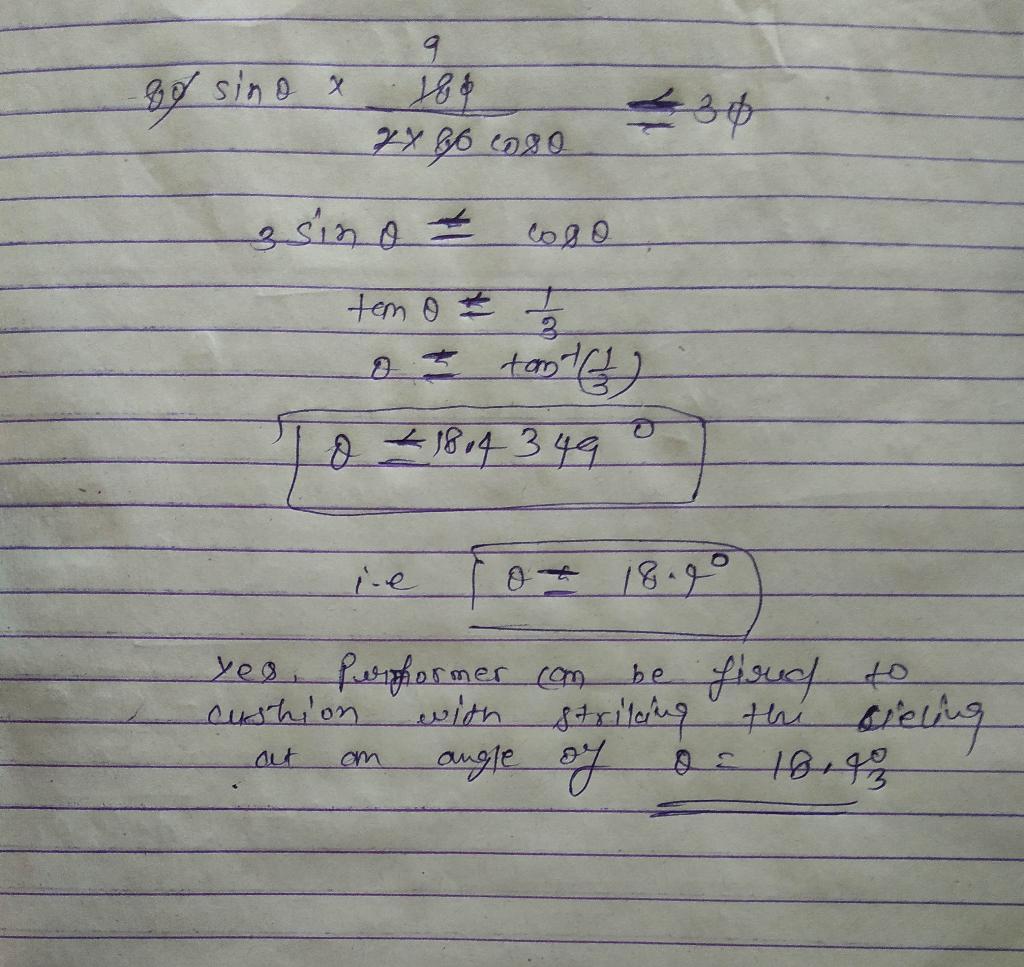 9
80 sin θ × 180 / 2×80 cos θ ≤ 30
3 sin θ ≤ cos θ
tan θ ≤ 1/3
θ ≤ tan⁻¹(1/3)
θ ≤ 18.4349°
i.e θ ≤ 18.4°
Yes, Performer can be fired to
cushion with striking the cieling
at an angle of θ = 18.43°